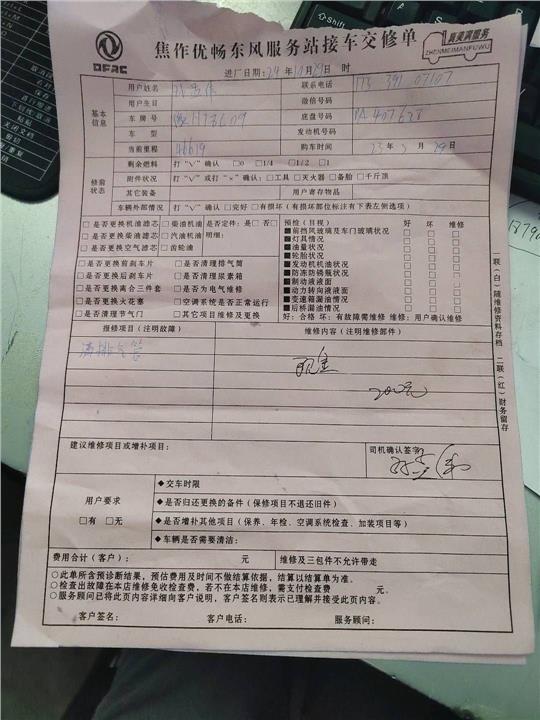 DFAC
焦作优畅东风服务站接车交修单
真美满服务
ZHENMEIMANFUWU
进厂日期:24年10月29日 时
基本信息
用户姓名
联系电话
用户生日
微信号码
车牌号
底盘号码
车型
发动机号码
当前里程 46619
购车时间 23年 月29日
修前状态
剩余燃料 打"V"确认 □0 □1/4 □1/2 □1
附件状况 打"V"或打"×"确认:□工具 □灭火器 □备胎 □千斤顶
其它装备 用户寄存物品
车辆外部情况 打"V"确认 □完好 □有损坏(有损坏部位标注有下表左侧选项)
□是否更换机油滤芯 □柴油机油
□是否更换柴油滤芯 □汽油机油
□是否更换空气滤芯 □齿轮油
是否定件:□是 □否
明细:
□是否更换前刹车片 □是否清理排气筒
□是否更换后刹车片 □是否清理尿素箱
□是否更换离合三件套 □是否为电气维修
□是否更换火花塞 □空调系统是否正常运行
□是否清理节气门 □其它项目维修及更换
预检(目视) 好 坏 维修
■前挡风玻璃及车门玻璃状况 □ □ □
■灯具情况 □ □ □
■油量状况 □ □ □
■轮胎状况 □ □ □
■发动机机油状况 □ □ □
■防冻防锈瓶状况 □ □ □
■制动液液面 □ □ □
■动力转向液液面 □ □ □
■变速箱漏油情况 □ □ □
■后桥漏油情况 □ □ □
好:合格 坏:有故障需维修 维修:用户确认维修
报修项目(注明故障)
维修内容(注明维修部件)
清排气管
200元
建议维修项目或增补项目:
司机确认签字:
用户要求
□有 □无
◆交车时限
◆是否归还更换的备件(保修项目不退还旧件)
◆是否增补其他项目(保养、年检、空调系统检查、加装项目等)
◆车辆是否需要清洁:
费用合计(客户): 元
维修及三包件不允许带走
○此单所含预诊断结果,预估费用及时间不做结算依据,结算以结算单为准。
○检查出故障在本店维修免收检查费,若不在本店维修,需支付检查费 元。
○服务顾问已将此页内容详细向客户说明,客户签名则表示已理解并接受此页内容。
客户签名: 客户电话: 服务顾问:
一联(白)随维修资料存档 二联(红)财务留存
Shift